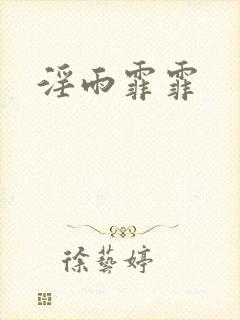 淫雨霏霏
徐藝婷